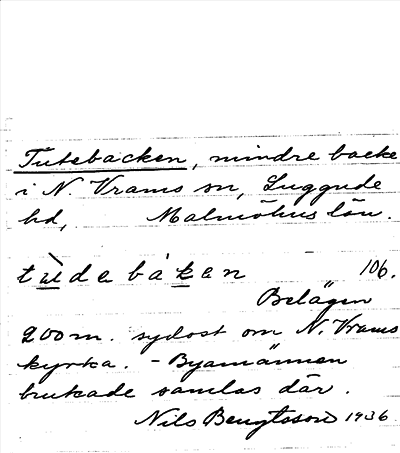 Tutebacken, mindre backe
i N. Vrams sn, Luggude
hd, Malmöhus län.
tùdebáken 106.
Belägen
200 m. sydost om N. Vrams
kyrka. - Byamännen
brukade samlas där.
Nils Bengtsson 1936